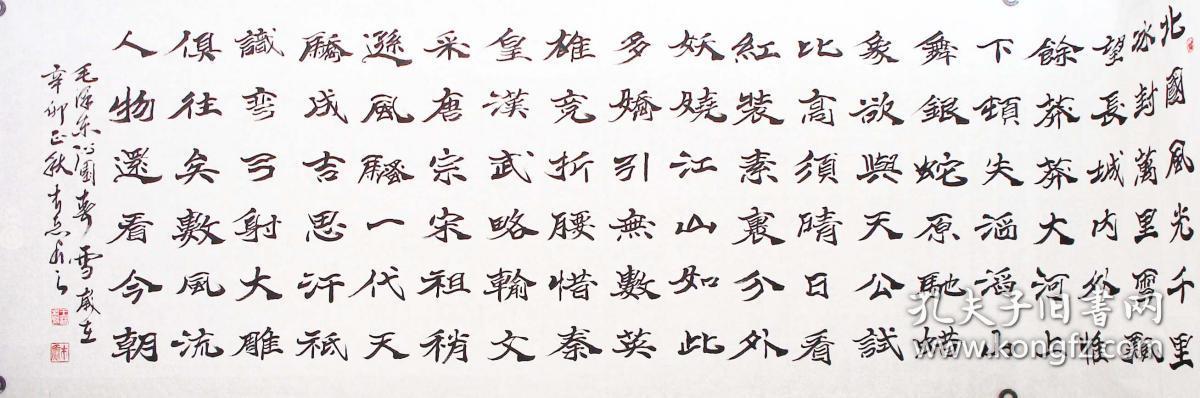 北國風光千里
冰封萬里雪飄
望長城內外惟
餘莽莽大河上
下頓失滔滔山
舞銀蛇原馳蜡
象欲與天公試
比高須晴日看
紅裝素裹分外
妖嬈江山如此
多嬌引無數英
雄竞折腰惜秦
皇漢武略輸文
采唐宗宋祖稍
遜風騷一代天
驕成吉思汗祇
識彎弓射大雕
俱往矣數風流
人物還看今朝
毛澤東沁園春雪歲在
辛卯正秋
孔夫子旧书网
www.kongfz.com